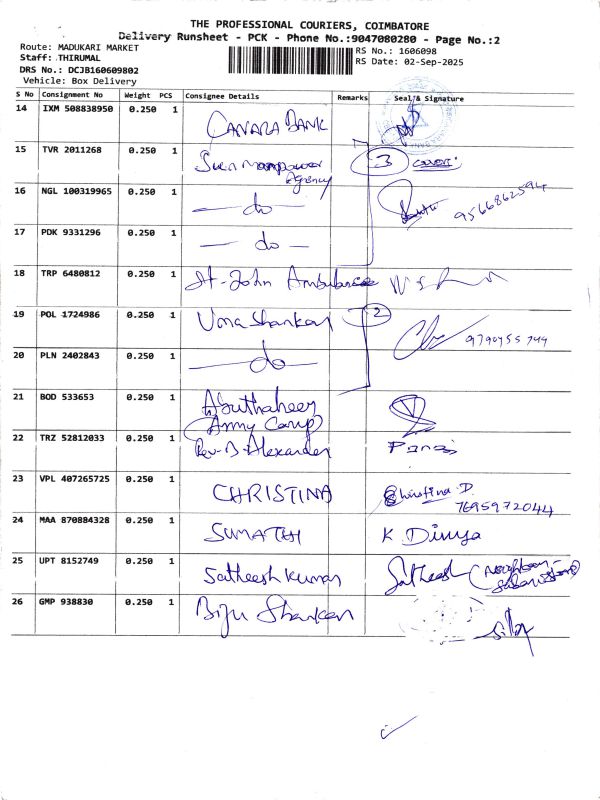 THE PROFESSIONAL COURIERS, COIMBATORE
Delivery Runsheet - PCK - Phone No.:9047080280 - Page No.:2
Route: MADUKARI MARKET
Staff: THIRUMAL
DRS No.: DCJB160609802
Vehicle: Box Delivery
RS No.: 1606098
RS Date: 02-Sep-2025
S No Consignment No Weight PCS Consignee Details Remarks Seal & Signature
14 IXM 508838950 0.250 1 CANARA BANK
15 TVR 2011268 0.250 1 Manpower Agency 3 cover
16 NGL 100319965 0.250 1 — do — 9566862594
17 PDK 9331296 0.250 1 — do —
18 TRP 6480812 0.250 1 St-John Ambulance
19 POL 1724986 0.250 1 Uma Shankar 2
20 PLN 2402843 0.250 1 — do —
21 BOD 533653 0.250 1 Abuthaheer (Army Camp)
22 TRZ 52812033 0.250 1 Rev-D-Alexander
23 VPL 407265725 0.250 1 CHRISTINA Christina D. 7695972044
24 MAA 870884328 0.250 1 SUMATHI K Divya
25 UPT 8152749 0.250 1 Satheesh kumar Satheesh
26 GMP 938830 0.250 1 Biju Shankar